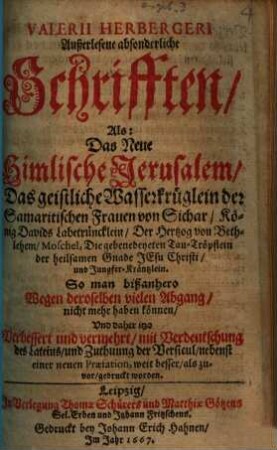 VALERII HERBERGERI
Außerlesene absonderliche
Schrifften/
Als:
Das Neue
Himlische Jerusalem/
Das geistliche Wasserkrüglein der
Samaritischen Frauen von Sichar/ Kö-
nig Davids Labetrüncklein/ Der Hertzog von Beth-
lehem/ Moschel, Die gebenedeyeten Tau-Tröpflein
der heilsamen Gnade JEsu Christi/
und Jungfer-Kräntzlein.
So man bißanhero
Wegen deroselben vielen Abgang/
nicht mehr haben können/
Und daher itzo
Verbessert und vermehrt/ mit Verdeutschung
des Lateins/und Zuthuung der Versicul/nebenst
einer neuen Præfation, weit besser/als zu-
vor/gedruckt worden.
Leipzig/
In Verlegung Thomæ Schürers und Matthiæ Götzens
Sel. Erben und Johann Fritzschens.
Gedruckt bey Johann Erich Hahnen/
Im Jahr 1667.